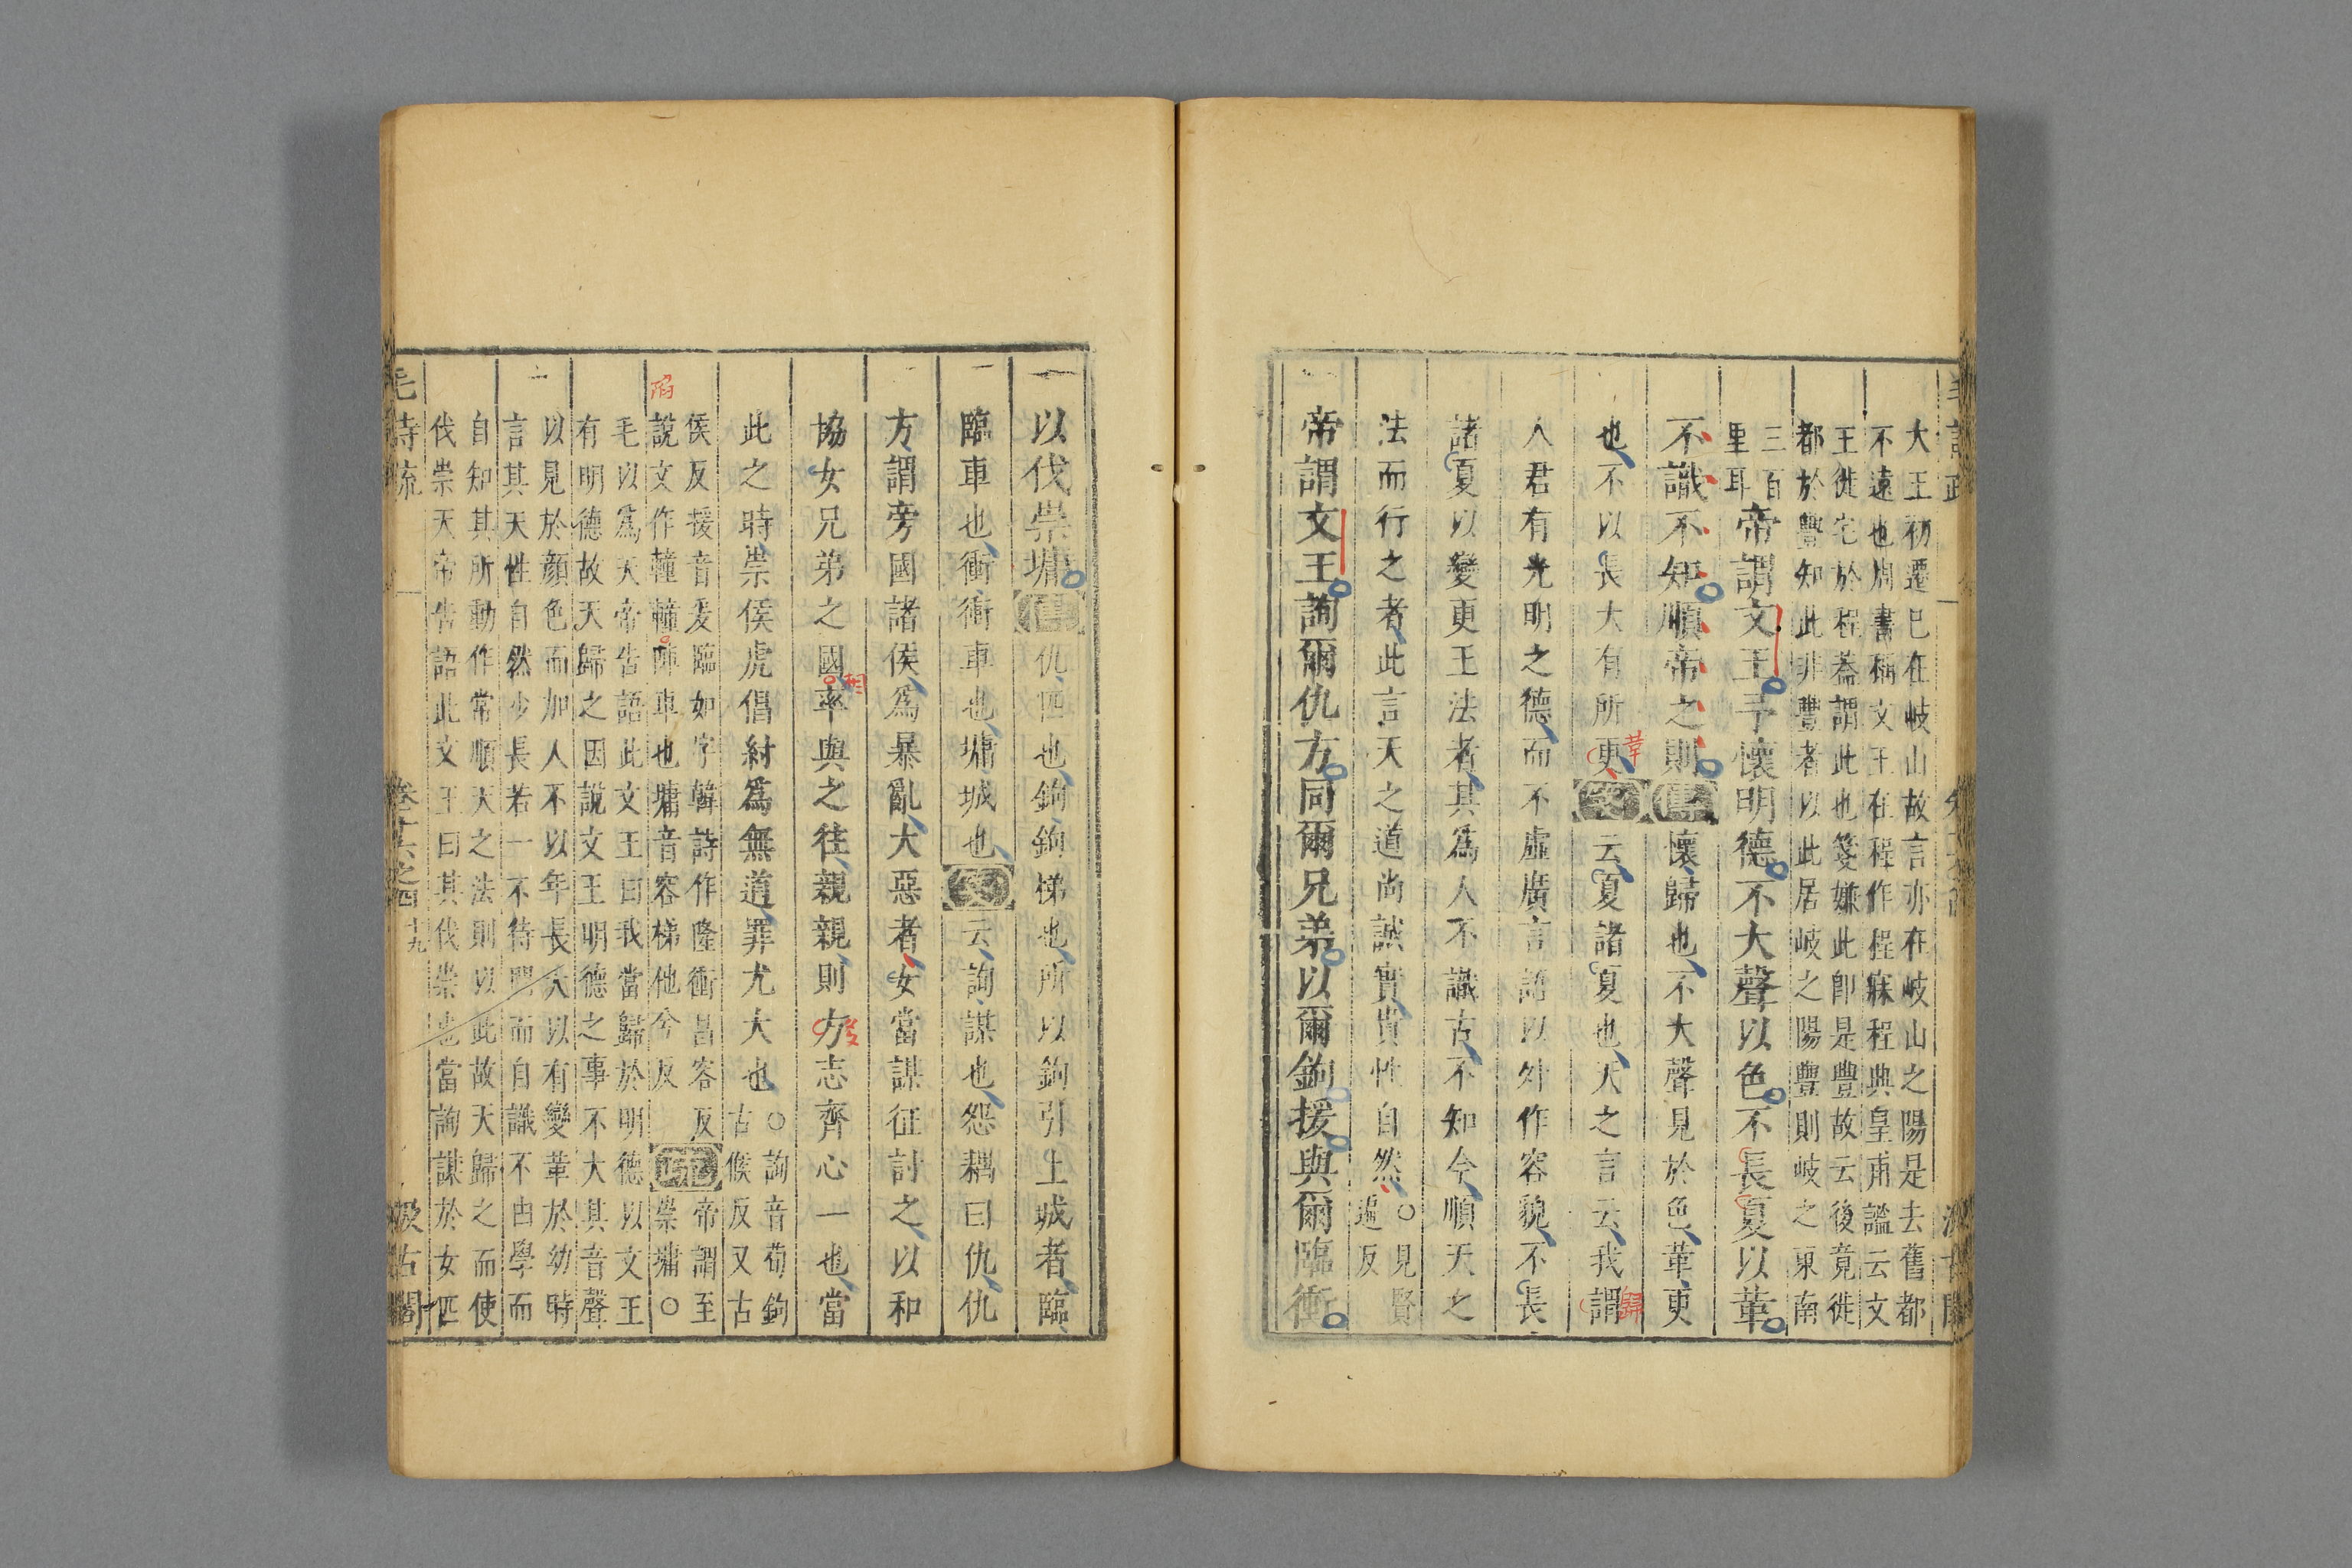 大王初遷已在岐山故言亦在岐山之陽是去舊都
不遠也周書稱文王在程作程寤程典皇甫謐云文
王徙宅於程葢謂此也箋嫌此卽是豐故云後竟徙
都於豐知此非豐者以此居岐之陽豐則岐之東南
三百
里耳
帝謂文王予懷明德不大聲以色不長夏以革
不識不知順帝之則傳懷歸也不大聲見於色革更
也不以長大有所更箋云夏諸夏也天之言云我謂
人君有光明之德而不虛廣言語以外作容貌不長
諸夏以變更王法者其爲人不識古不知今順天之
法而行之者此言天之道尚誠實貴性自然
○見賢
遍反
帝謂文王詢爾仇方同爾兄弟以爾鉤援與爾臨衝
以伐崇墉傳仇匹也鉤鉤梯也所以鉤引上城者臨
臨車也衝衝車也墉城也箋云詢謀也怨耦曰仇仇
方謂旁國諸侯爲暴亂大惡者女當謀征討之以和
協女兄弟之國率與之往親親則方志齊心一也當
此之時崇侯虎倡紂爲無道罪尤大也
○詢音荀鉤
古候反又古
侯反援音爰臨如字韓詩作隆衝昌容反
說文作䡴䡴陣車也墉音容梯他兮反
疏
帝謂至
崇墉○
毛以爲天帝告語此文王曰我當歸於明德以文王
有明德故天歸之因說文王明德之事不大其音聲
以見於顏色而加人不以年長大以有變革於幼時
言其天性自然少長若一不待問而自識不由學而
自知其所動作常順天之法則以此故天歸之而使
伐崇天帝告語此文王曰其伐崇也當詢謀於女匹
毛詩疏
卷十六之四
十九
汲古閣
革
歸
相
發